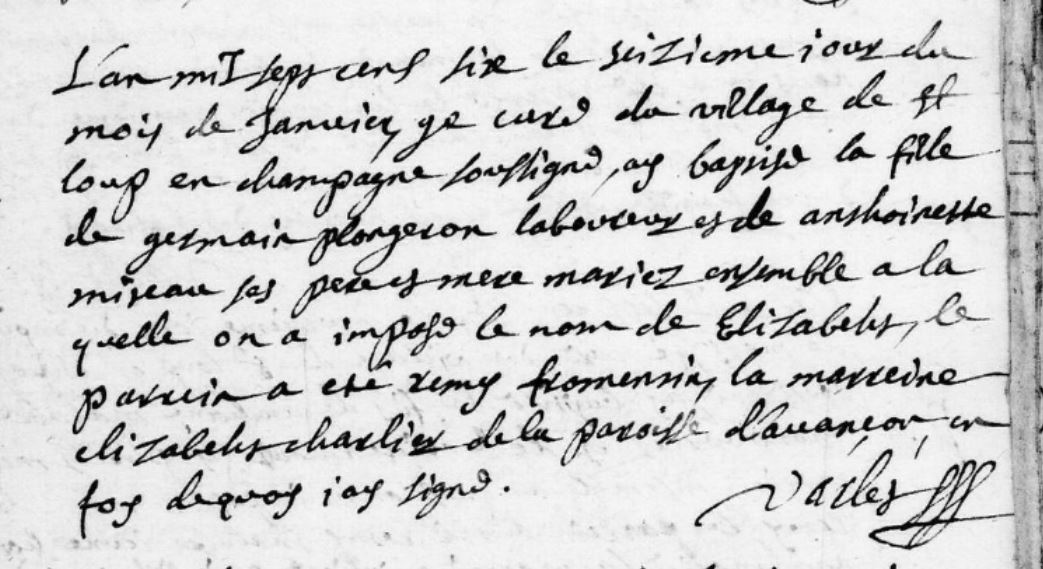 L'an mil sept cens sixe le seizieme jour du
mois de Janvier, je curé du village de st
loup en champagne soussigné, ay baptisé la fille
de germain plongeron laboureur et de anthoinette
miseau ses pere et mere mariez ensemble a la
quelle on a imposé le nom de Elizabeth, le
parrein a eté remy fromensin, la marreine
elizabeth charlier de la paroisse d'avançon, en
foy dequoy j'ay signé.